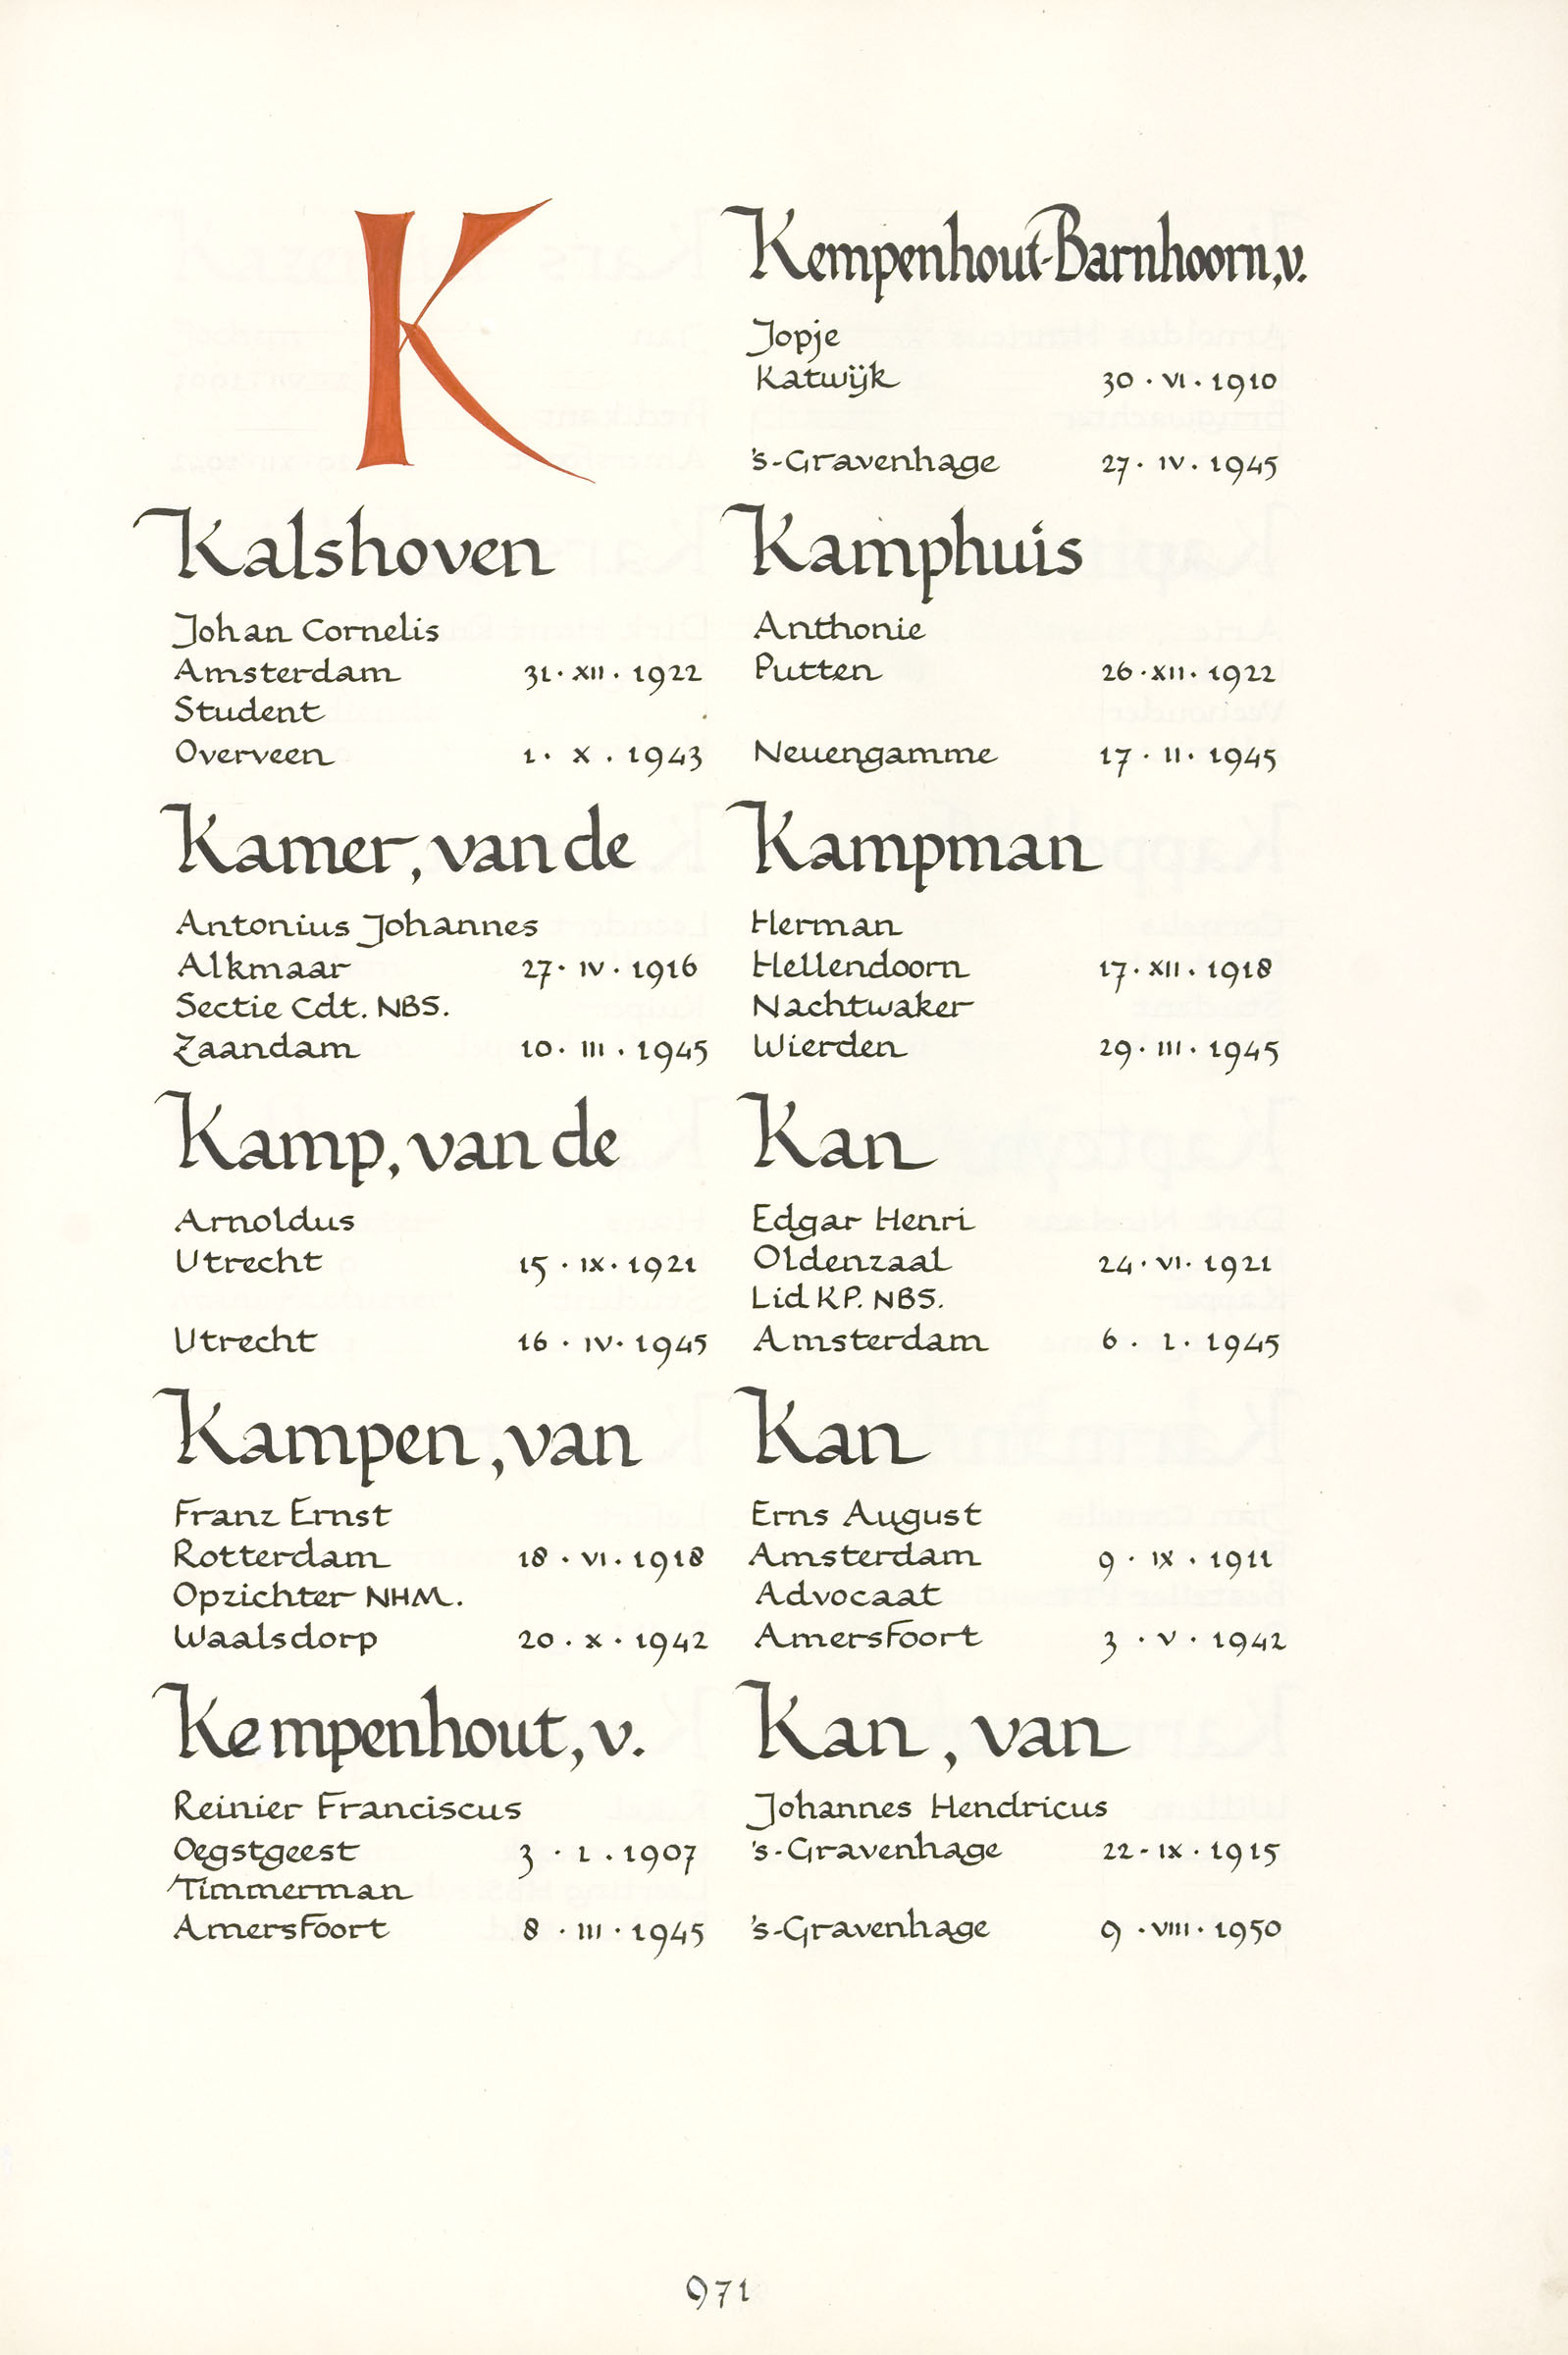 K
Kalshoven
Johan Cornelis
Amsterdam 31 · XII · 1922
Student
Overveen 1 · X · 1943
Kamer, van de
Antonius Johannes
Alkmaar 27 · IV · 1916
Sectie Cdt. NBS.
Zaandam 10 · III · 1945
Kamp, van de
Arnoldus
Utrecht 15 · IX · 1921
Utrecht 16 · IV · 1945
Kampen, van
Franz Ernst
Rotterdam 18 · VI · 1918
Opzichter NHM.
Waalsdorp 20 · X · 1942
Kempenhout, v.
Reinier Franciscus
Oegstgeest 3 · 1 · 1907
Timmerman
Amersfoort 8 · III · 1945
Kempenhout-Barnhoorn, v.
Jopje
Katwijk 30 · VI · 1910
's-Gravenhage 27 · IV · 1945
Kamphuis
Anthonie
Putten 26 · XII · 1922
Neuengamme 17 · II · 1945
Kampman
Herman
Hellendoorn 17 · XII · 1918
Nachtwaker
Wierden 29 · III · 1945
Kan
Edgar Henri
Oldenzaal 24 · VI · 1921
Lid KP. NBS.
Amsterdam 6 · 1 · 1945
Kan
Erns August
Amsterdam 9 · IX · 1911
Advocaat
Amersfoort 3 · V · 1942
Kan, van
Johannes Hendricus
's-Gravenhage 22 - IX · 1915
's-Gravenhage 9 · VIII · 1950
971